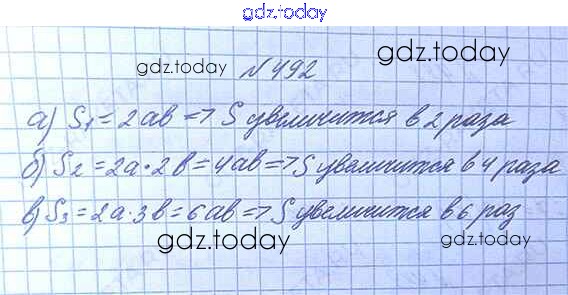 gdz.today
gdz.today
gdz.today № 492
а) S₁ = 2ab => S увеличится в 2 раза
б) S₂ = 2a·2b = 4ab => S увеличится в 4 раза
в) S₃ = 2a·3b = 6ab => S увеличится в 6 раз
gdz.today
gdz.today